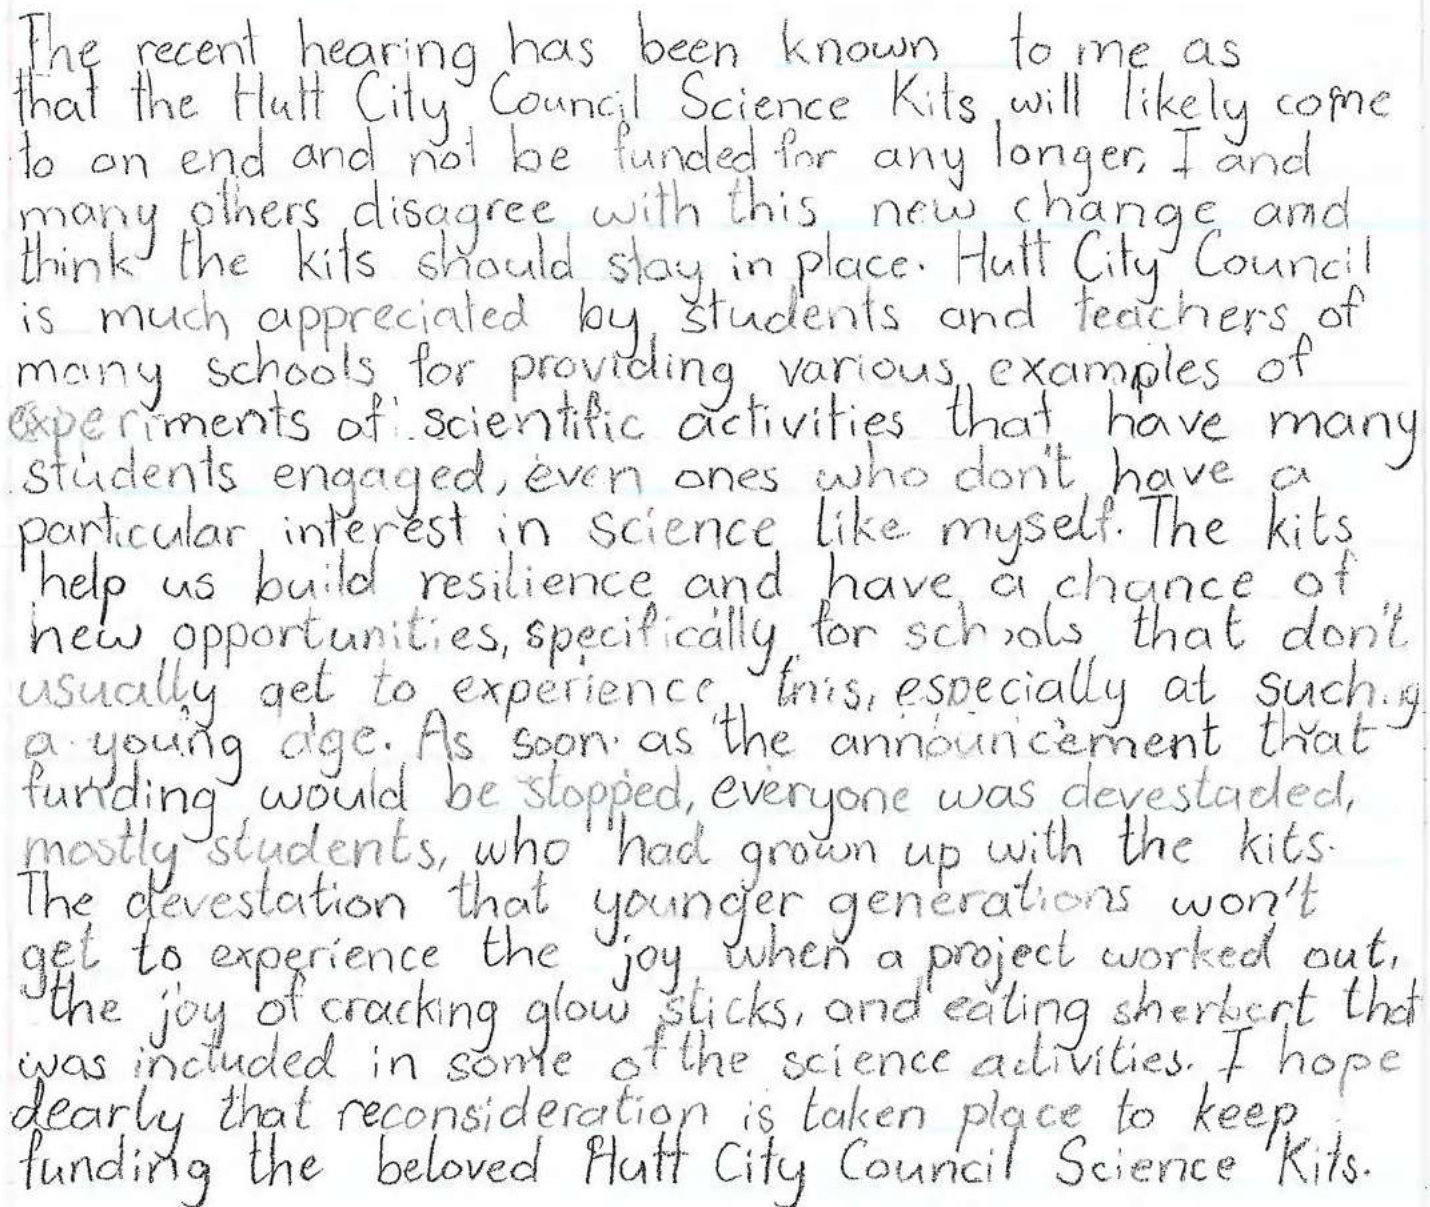 The recent hearing has been known to me as
that the Hutt City Council Science Kits will likely come
to an end and not be funded for any longer. I and
many others disagree with this new change and
think the kits should stay in place. Hutt City Council
is much appreciated by students and teachers of
many schools for providing various examples of
experiments of scientific activities that have many
students engaged, even ones who don't have a
particular interest in science like myself. The kits
help us build resilience and have a chance of
new opportunities, specifically for schools that don't
usually get to experience this, especially at such
a young age. As soon as the announcement that
funding would be stopped, everyone was devestaded,
mostly students, who had grown up with the kits.
The devestation that younger generations won't
get to experience the joy when a project worked out,
the joy of cracking glow sticks, and eating sherbert that
was included in some of the science activities. I hope
dearly that reconsideration is taken place to keep
funding the beloved Hutt City Council Science Kits.